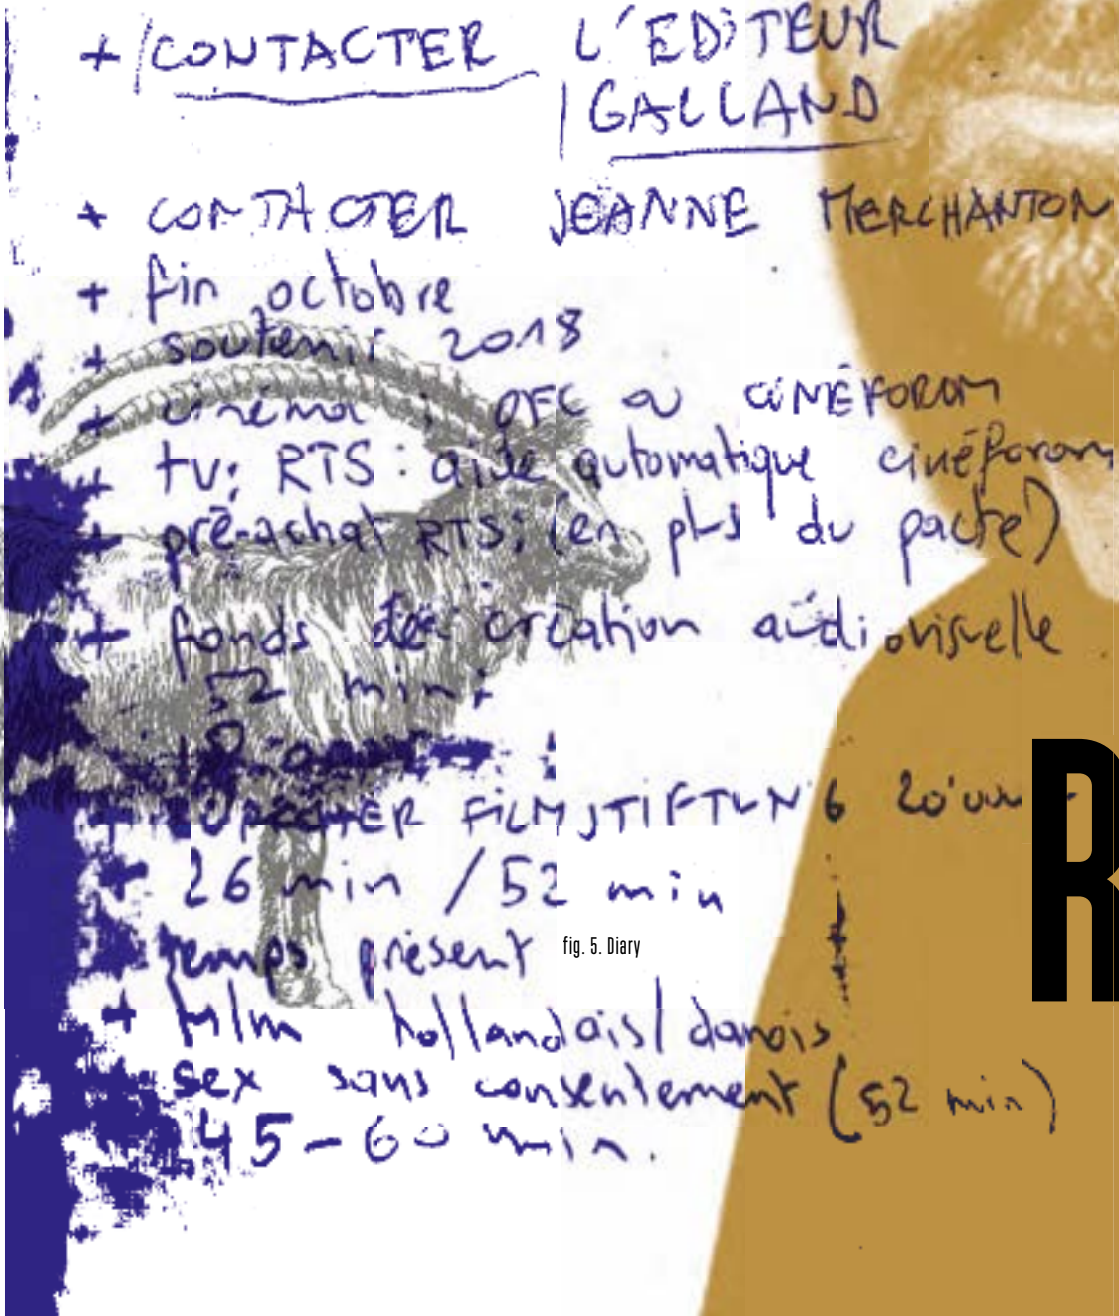 + / CONTACTER L'EDITEUR
/ GALLAND
+ CONTACTER JEANNE MERCHANTON
+ fin octobre
+ soutenir 2018
+ cinéma : OFC ou CINÉFOROM
+ tv: RTS : aide automatique cinéforom
+ pré-achat RTS; (en plus du pacte)
+ fonds de création audiovisuelle
52 min;
FILMSTIFTUNG
+ 26 min / 52 min
+ temps présent
fig. 5. Diary
+ film hollandais / danois
sex sans consentement (52 min)
45-60 min.
R